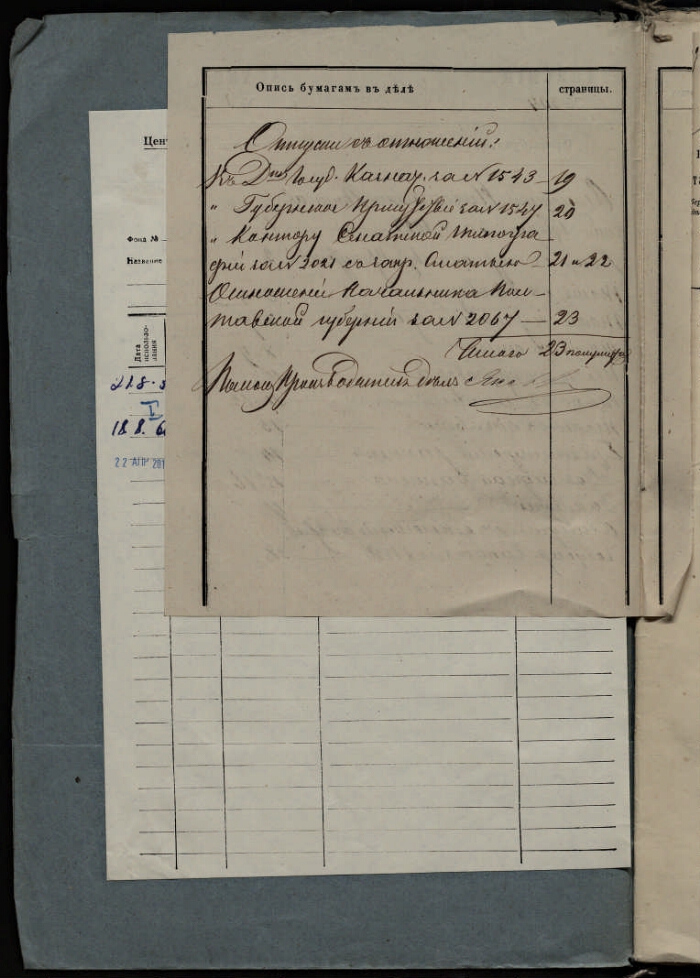 Опись бумагамъ въ дѣлѣ
страницы.
Отпуски съ отношеній:
Къ Госуд. Казнач. за № 1543 — 19
" Губернское за № 1547 20
" Контору Сенатской Типогра
фіи за № 2021 съ запр. Статьею — 21 и 22
Отношеніе Начальника Пол-
тавской губерніи за № 2067 — 23
Итого 23 полулиста
Помощ. Производителя дѣлъ
Цен
Фонд №
Название
Дата
использо-
вания
22 АПР 201